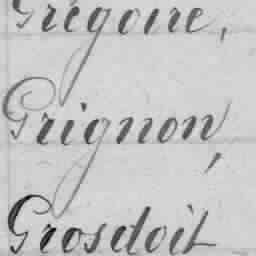 Grégoire,
Grignon,
Grosdoit